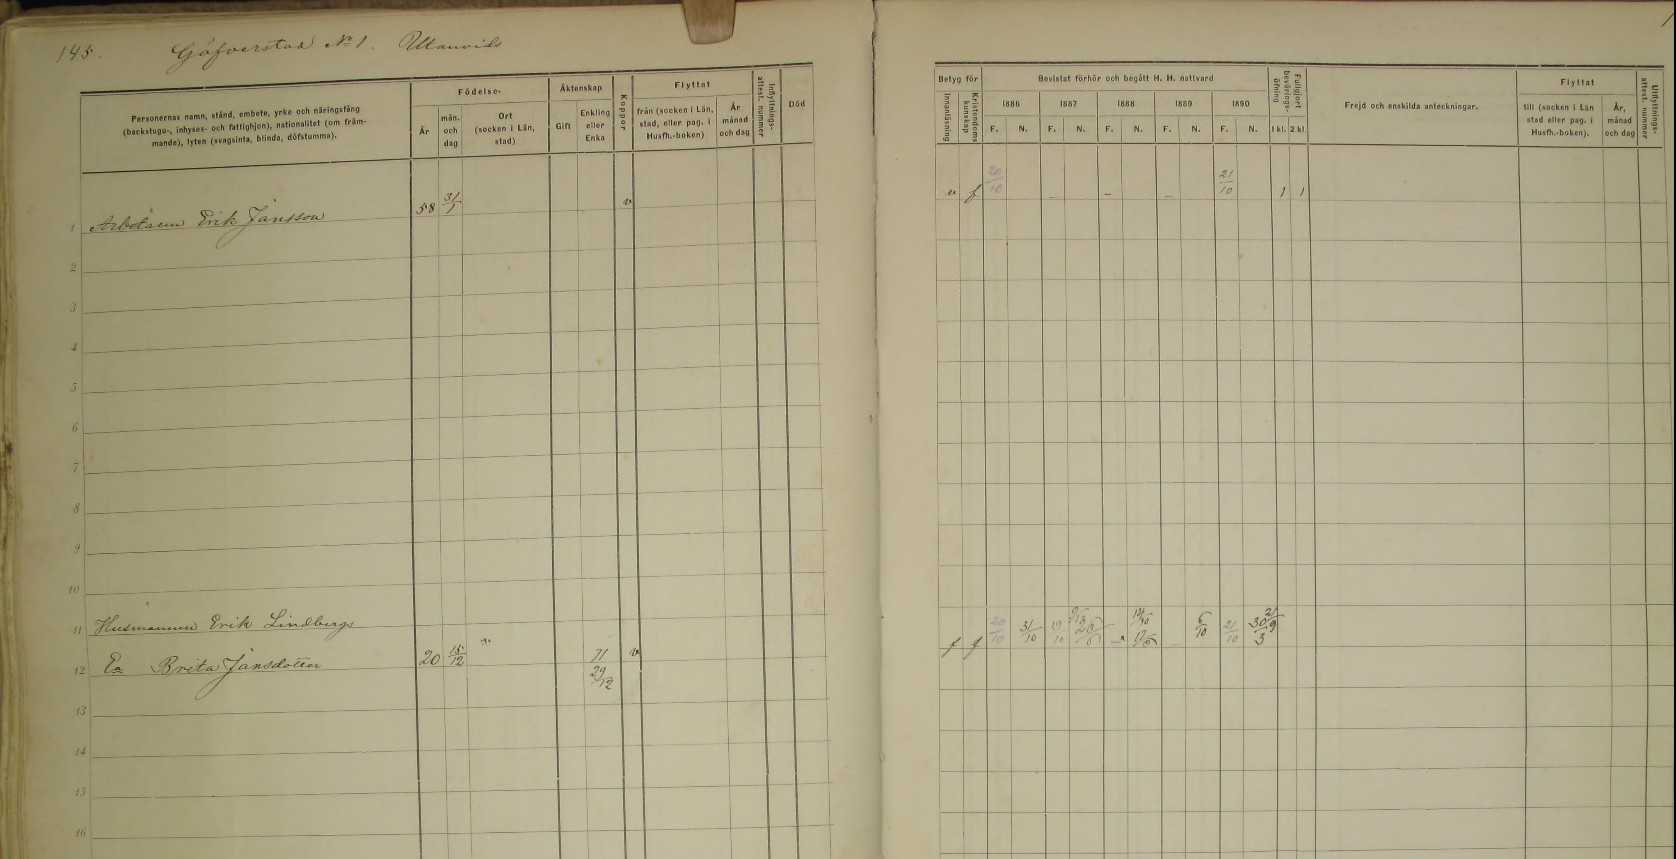 145. Gäfverstad No 1. Utanvids
Personernas namn, stånd, embete, yrke och näringsfång
(backstugu-, inhyses- och fattighjon), nationalitet (om främ-
mande), lyten (svagsinta, blinda, döfstumma).
Födelse-
År
mån. och dag
Ort (socken i Län, stad)
Äktenskap
Gift
Enkling eller Enka
Koppor
Flyttat
från (socken i Län, stad, eller pag. i Husfh.-boken)
År månad och dag
Inflyttnings-attest. nummer
Död
Betyg för
Innanläsning
Kristendoms kunskap
Bevistat förhör och begått H. H. nattvard
1886 1887 1888 1889 1890
F. N. F. N. F. N. F. N. F. N.
Fullgjort bevärings-öfning
1 kl. 2 kl.
Frejd och enskilda anteckningar.
Flyttat
till (socken i Län stad eller pag. i Husfh.-boken).
År, månad och dag
Utflyttnings-attest. nummer
1 Erik Jansson 58 31/1 v v f 20/10 - - - 21/10 1 1
2
3
4
5
6
7
8
9
10
11 Husmannen Erik Lindbergs
12 Ea Brita Jansdotter 20 15/12 71 29/12 v f f 20/10 31/10 6/10 21/10
13
14
15
16